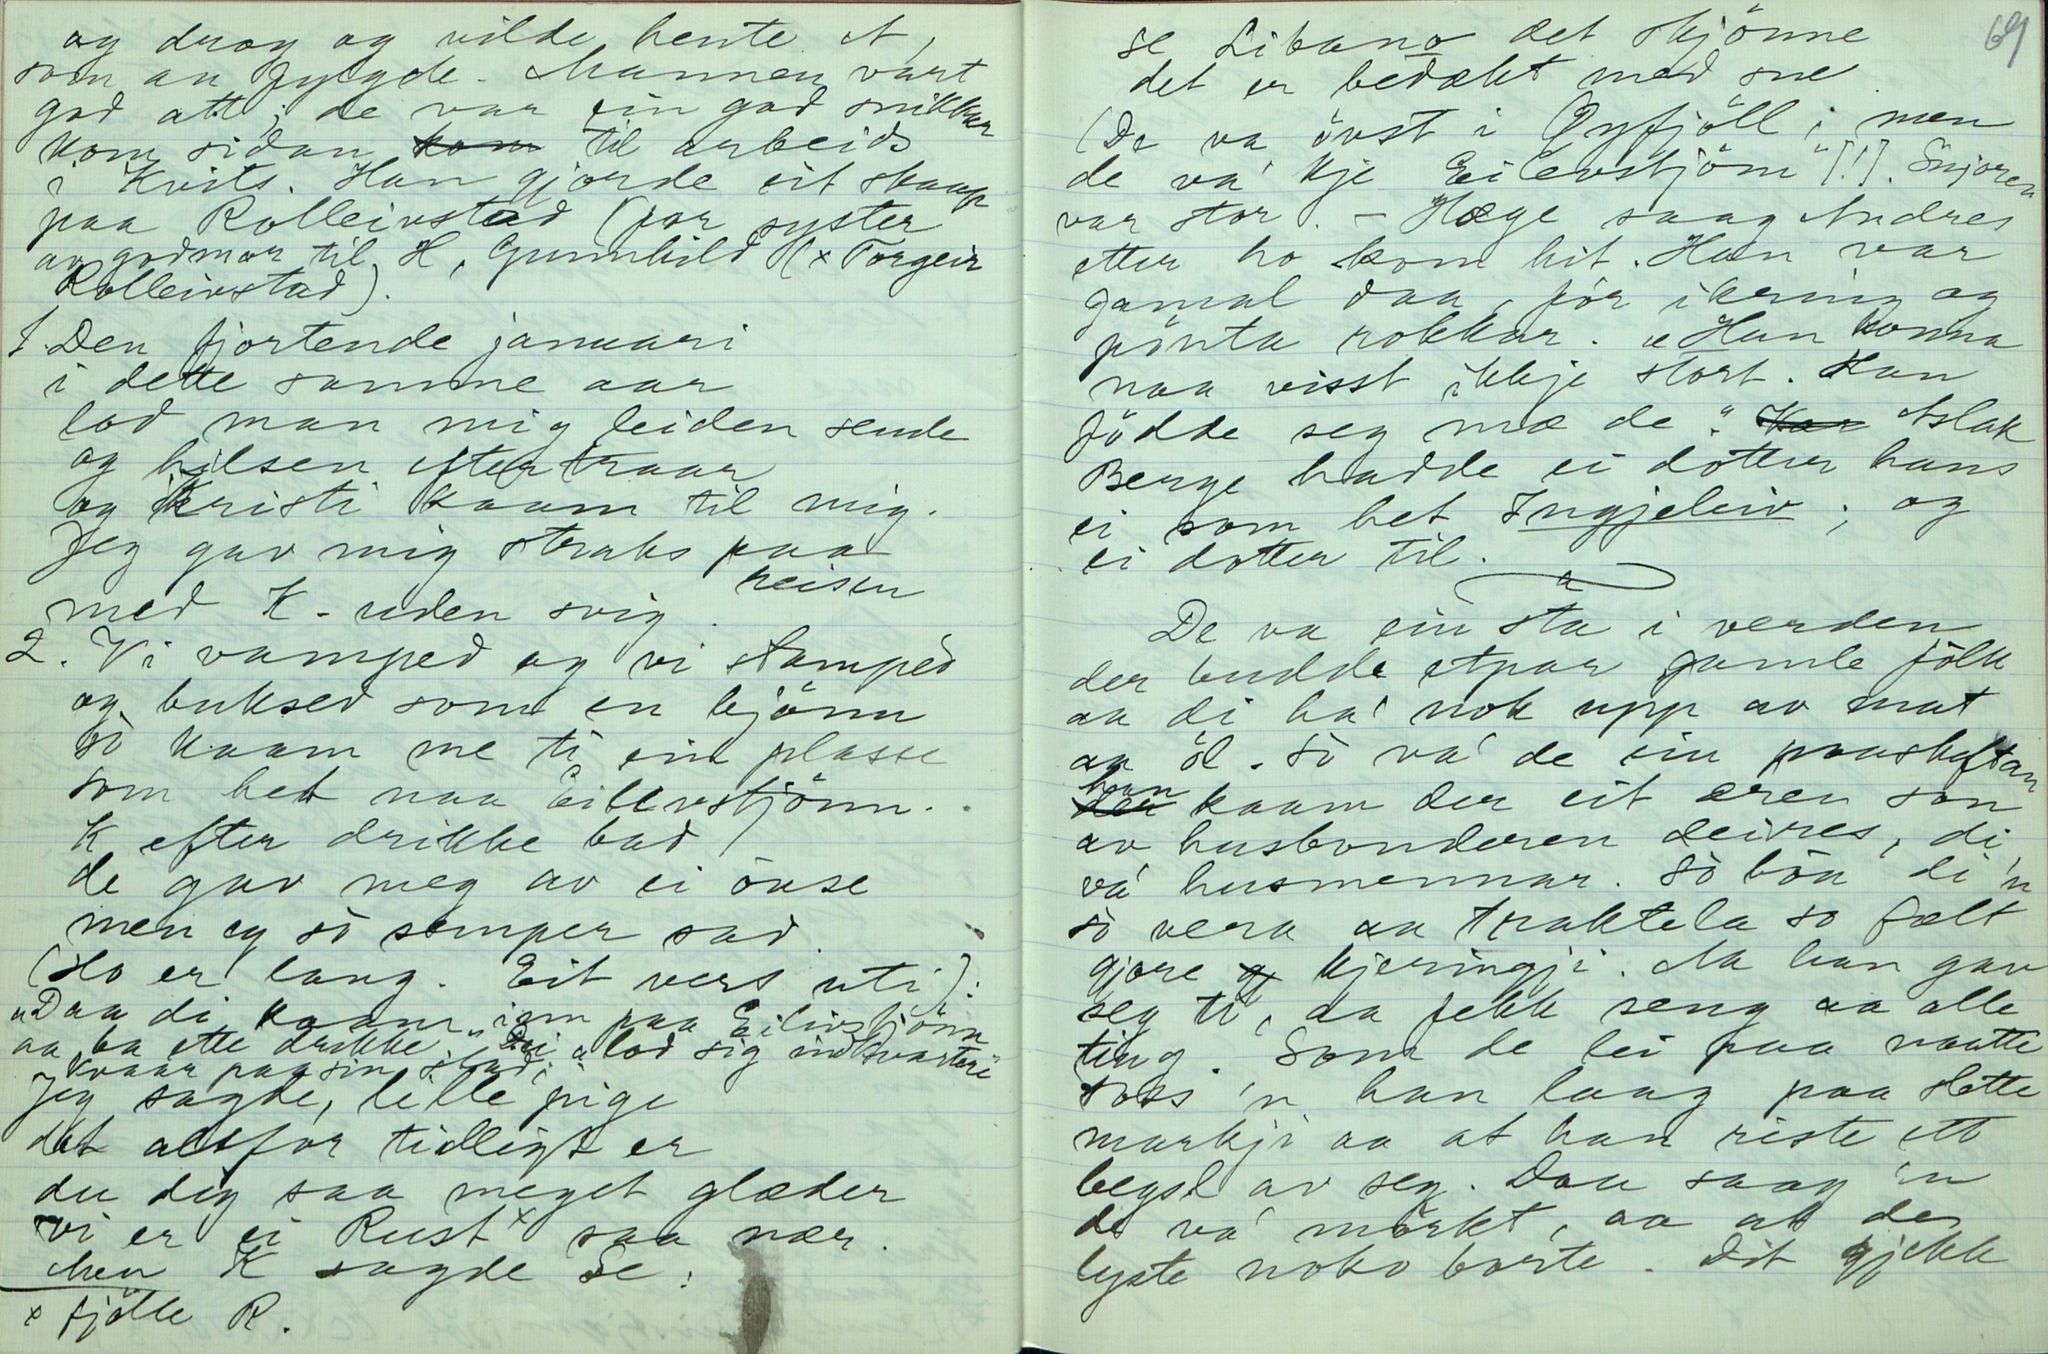 og drog og vilde hente et,
som an fylgde. Mannen vart
god att; de var ein god snikkar
kom sidan kom til arbeids
i Kvits. Han gjorde eit skaap
paa Rolleivstad (for syster
av godmor til H, Gunnhild (x Torgeir
Rolleivstad).
1. Den fjortende januari
i dette samme aar
lod man mig leiden sende
og hilsen efter traar
og Kristi kaam til mig.
Jeg gav mig straks paa
reisen
med K - uden svig.
2. Vi vamped og vi stamped
og buksed som en bjönn
så kaam me ti ein plasse
som het naa Eilevstjönn.
K efter drikke bad
de gav meg av ei önse
men eg så semper sad.
(Ho er lang. Eit vers uti):
"Daa di kaam inn paa Eilivstjönn
aa ba ette drikke". Dei "lod sig indkvarteri
kvaar paa sin stad;
Jeg sagde, lille pige
det altfor tidligt er
du dig saa meget glæder
vi er ei Rust x saa nær.
Men K sagde Se:
x fjölle R.
69
se Libano det skjönne
det er bedækt med sne
(De va övst i Öyfjöll; men
de va' kje Eilevstjönn" [!]. Snjoren
var stor. - Hæge saag Andres
etter ho kom hit. Han var
gamal daa, för ikring og
pönta rokkar. "Han konna
naa visst ikkje stort. Han
födde seg mæ de." Kar Aslak
Berge hadde ei dotter hans
ei som het Ingjeleiv; og
ei dotter til.
De va ein sta i verden
der budde etpar gamle fólk
aa di ha' nok upp av mat
aa öl. Så va' de ein paaskeftan
der han kaam der eit æren son
av husbonderen deires, di
va' husmennar. Så böa di 'n
så vera aa traktela so fælt
gjore og kjeringji. Aa han gav
seg ti, aa fekk seng aa alle
ting. Som de lei paa naatte
toss 'n han laag paa slette
markji aa at han riste ett
begsl av seg. Daa saag 'n
de va' mörkt, aa at der
lyste noko borte. Dit gjekk